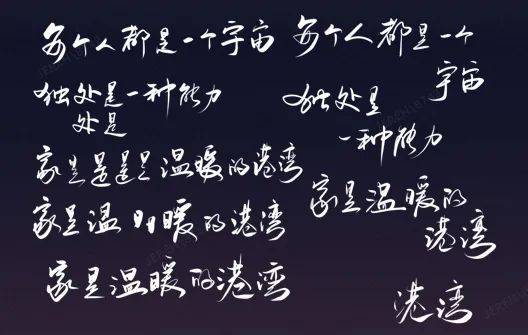 每个人都是一个宇宙
独处是一种能力
处是
家是是是是温暖的港湾
家是温明暖的港湾
家是温暖的港湾
每个人都是一个
宇宙
独处是
一种能力
家是温暖的
港湾
港湾